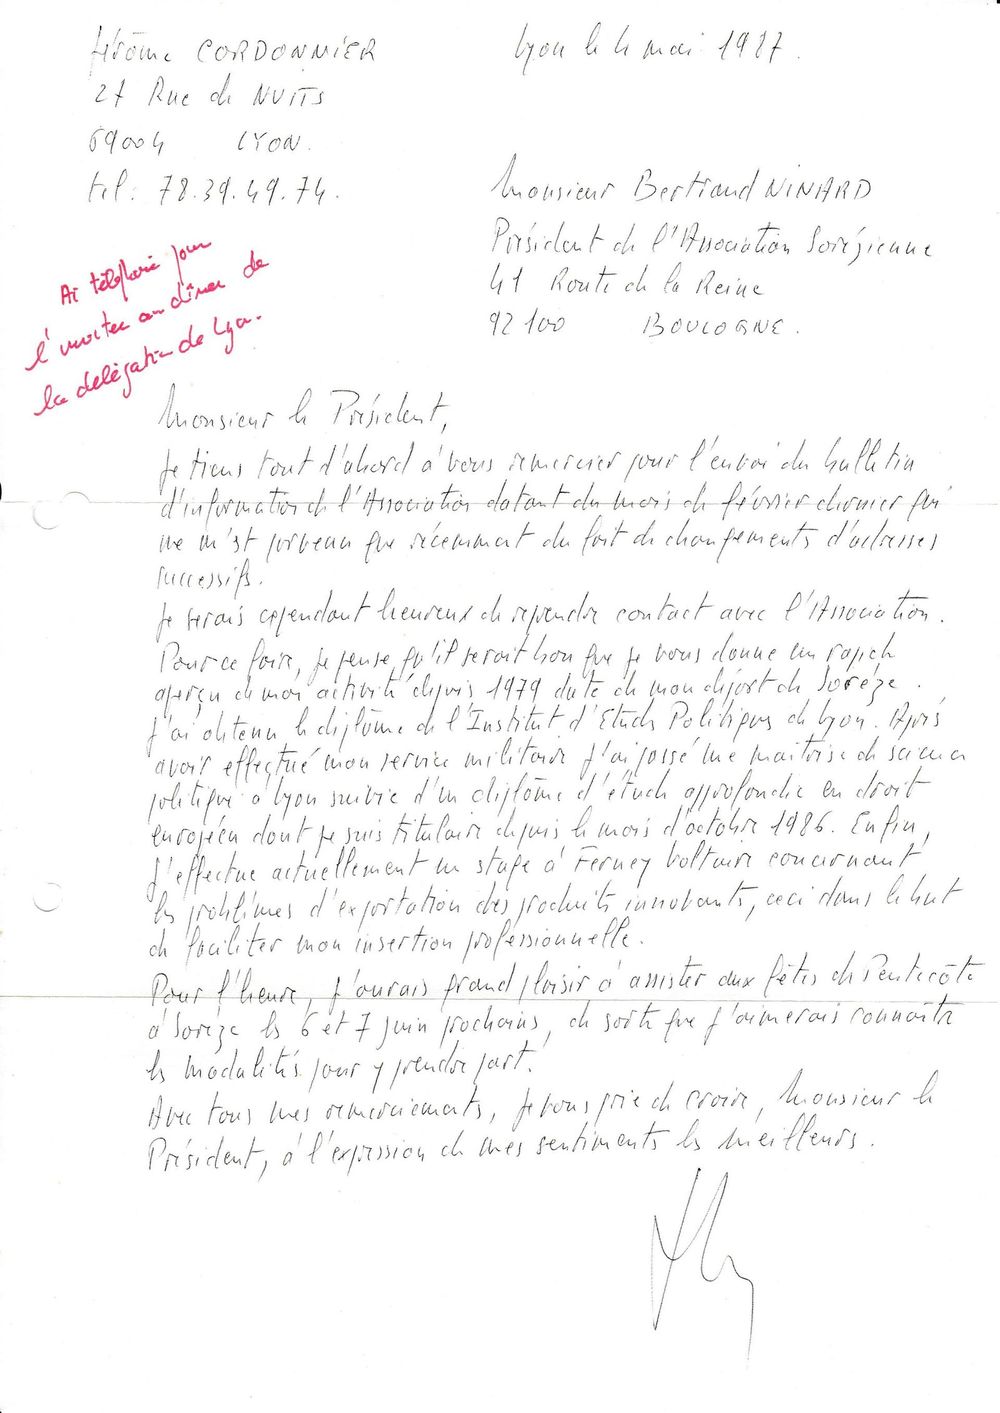 Jérôme CORDONNIER
27 Rue de NUITS
69004 LYON.
tel: 78.39.49.74.
Lyon le 4 mai 1987.
Monsieur Bertrand NINARD
Président de l'Association Sorézienne
41 Route de la Reine
92100 BOULOGNE.
Ai téléphoné pour
l'inviter au dîner de
la délégation de Lyon.
Monsieur le Président,
Je tiens tout d'abord à vous remercier pour l'envoi du bulletin
d'information de l'Association datant du mois de février dernier qui
ne m'est parvenu que récemment du fait de changements d'adresses
successifs.
Je serais cependant heureux de reprendre contact avec l'Association.
Pour ce faire, je pense qu'il serait bon que je vous donne un rapide
aperçu de mon activité depuis 1979 date de mon départ de Sorèze.
J'ai obtenu le diplôme de l'Institut d'Etudes Politiques de Lyon. Après
avoir effectué mon service militaire j'ai passé une maîtrise de science
politique à Lyon suivie d'un diplôme d'étude approfondie en droit
européen dont je suis titulaire depuis le mois d'octobre 1986. Enfin,
j'effectue actuellement un stage à Ferney Voltaire concernant
les problèmes d'exportation des produits innovants, ceci dans le but
de faciliter mon insertion professionnelle.
Pour l'heure, j'aurais grand plaisir à assister aux fêtes de Pentecôte
à Sorèze les 6 et 7 juin prochains, de sorte que j'aimerais connaître
les modalités pour y prendre part.
Avec tous mes remerciements, je vous prie de croire, Monsieur le
Président, à l'expression de mes sentiments les meilleurs.